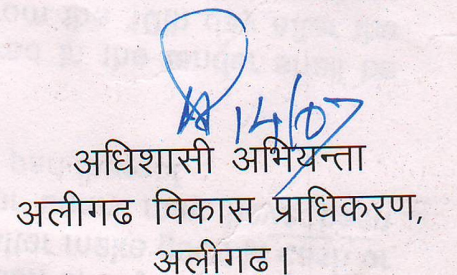 14/07
अधिशासी अभियन्ता
अलीगढ विकास प्राधिकरण,
अलीगढ।